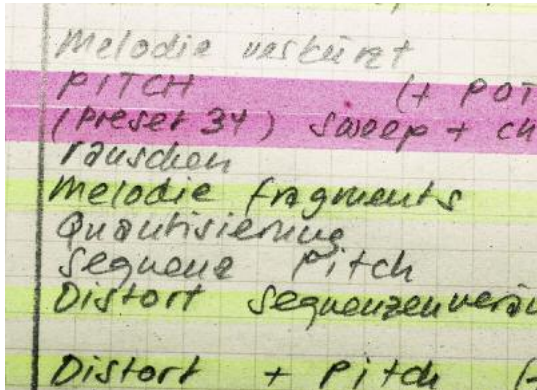 Melodie verkürzt
PITCH (+ POT
(Preset 34) sweep + ch
rauschen
Melodie fragments
Quantisierung
Sequenz Pitch
Distort Sequenzenverän
Distort + Pitch (